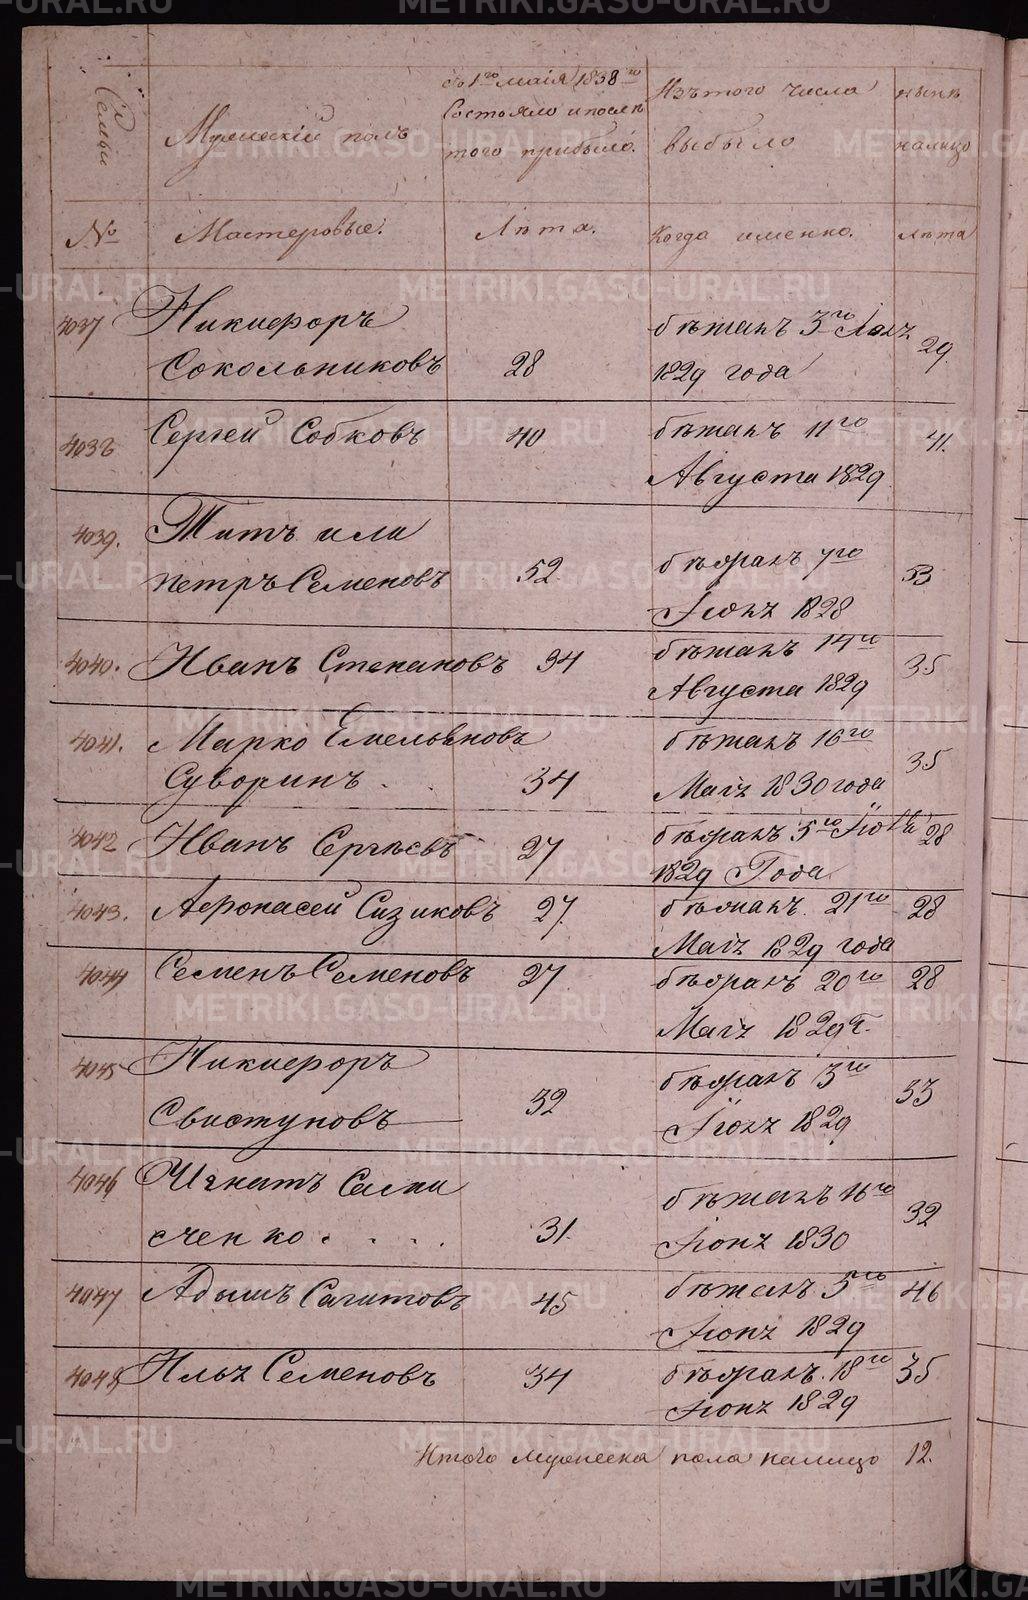 METRIKI.GASO-URAL.RU
Семьи
Мужескій полъ
Съ 1го маія 1838го
Состояло и послѣ
того прибыло.
Изъ того числа
выбыло
нынѣ
на лицо
№
Мастеровые.
Лѣта.
Когда именно.
лѣта
4037 Никифоръ бѣжалъ 3го Іюля 29
Сокольниковъ 28 1829 года
4038 Сергей Собковъ 40 бѣжалъ 11го 41.
Августа 1829
4039. Титъ или
Петръ Семеновъ 52 бѣжалъ 7го 53
Іюля 1828
4040. Иванъ Степановъ 34 бѣжалъ 14го 35
Августа 1829
4041. Марко Емельяновъ бѣжалъ 16го 35
Суворинъ . . 34 Маія 1830 года
4042 Иванъ Сергѣевъ 27 бѣжалъ 5го 28
1829 Года
4043. Афонасей Сизиковъ 27. бѣжалъ 21го 28
Маія 1829 года
4044 Семенъ Семеновъ 27 бѣжалъ 20го 28
Маія 1829 г.
4045 Никифоръ бѣжалъ 3го
Свистуновъ 32 Іюля 1829 33
4046 Игнатъ бѣжалъ 16го 32
сченко . . . . 31. Іюня 1830
4047 Адышъ Сагитовъ 45 бѣжалъ 5го 46
Іюня 1829
4048 Илья Семеновъ 34 бѣжалъ 18го 35
Іюня 1829
Итого мужеска пола налицо 12.